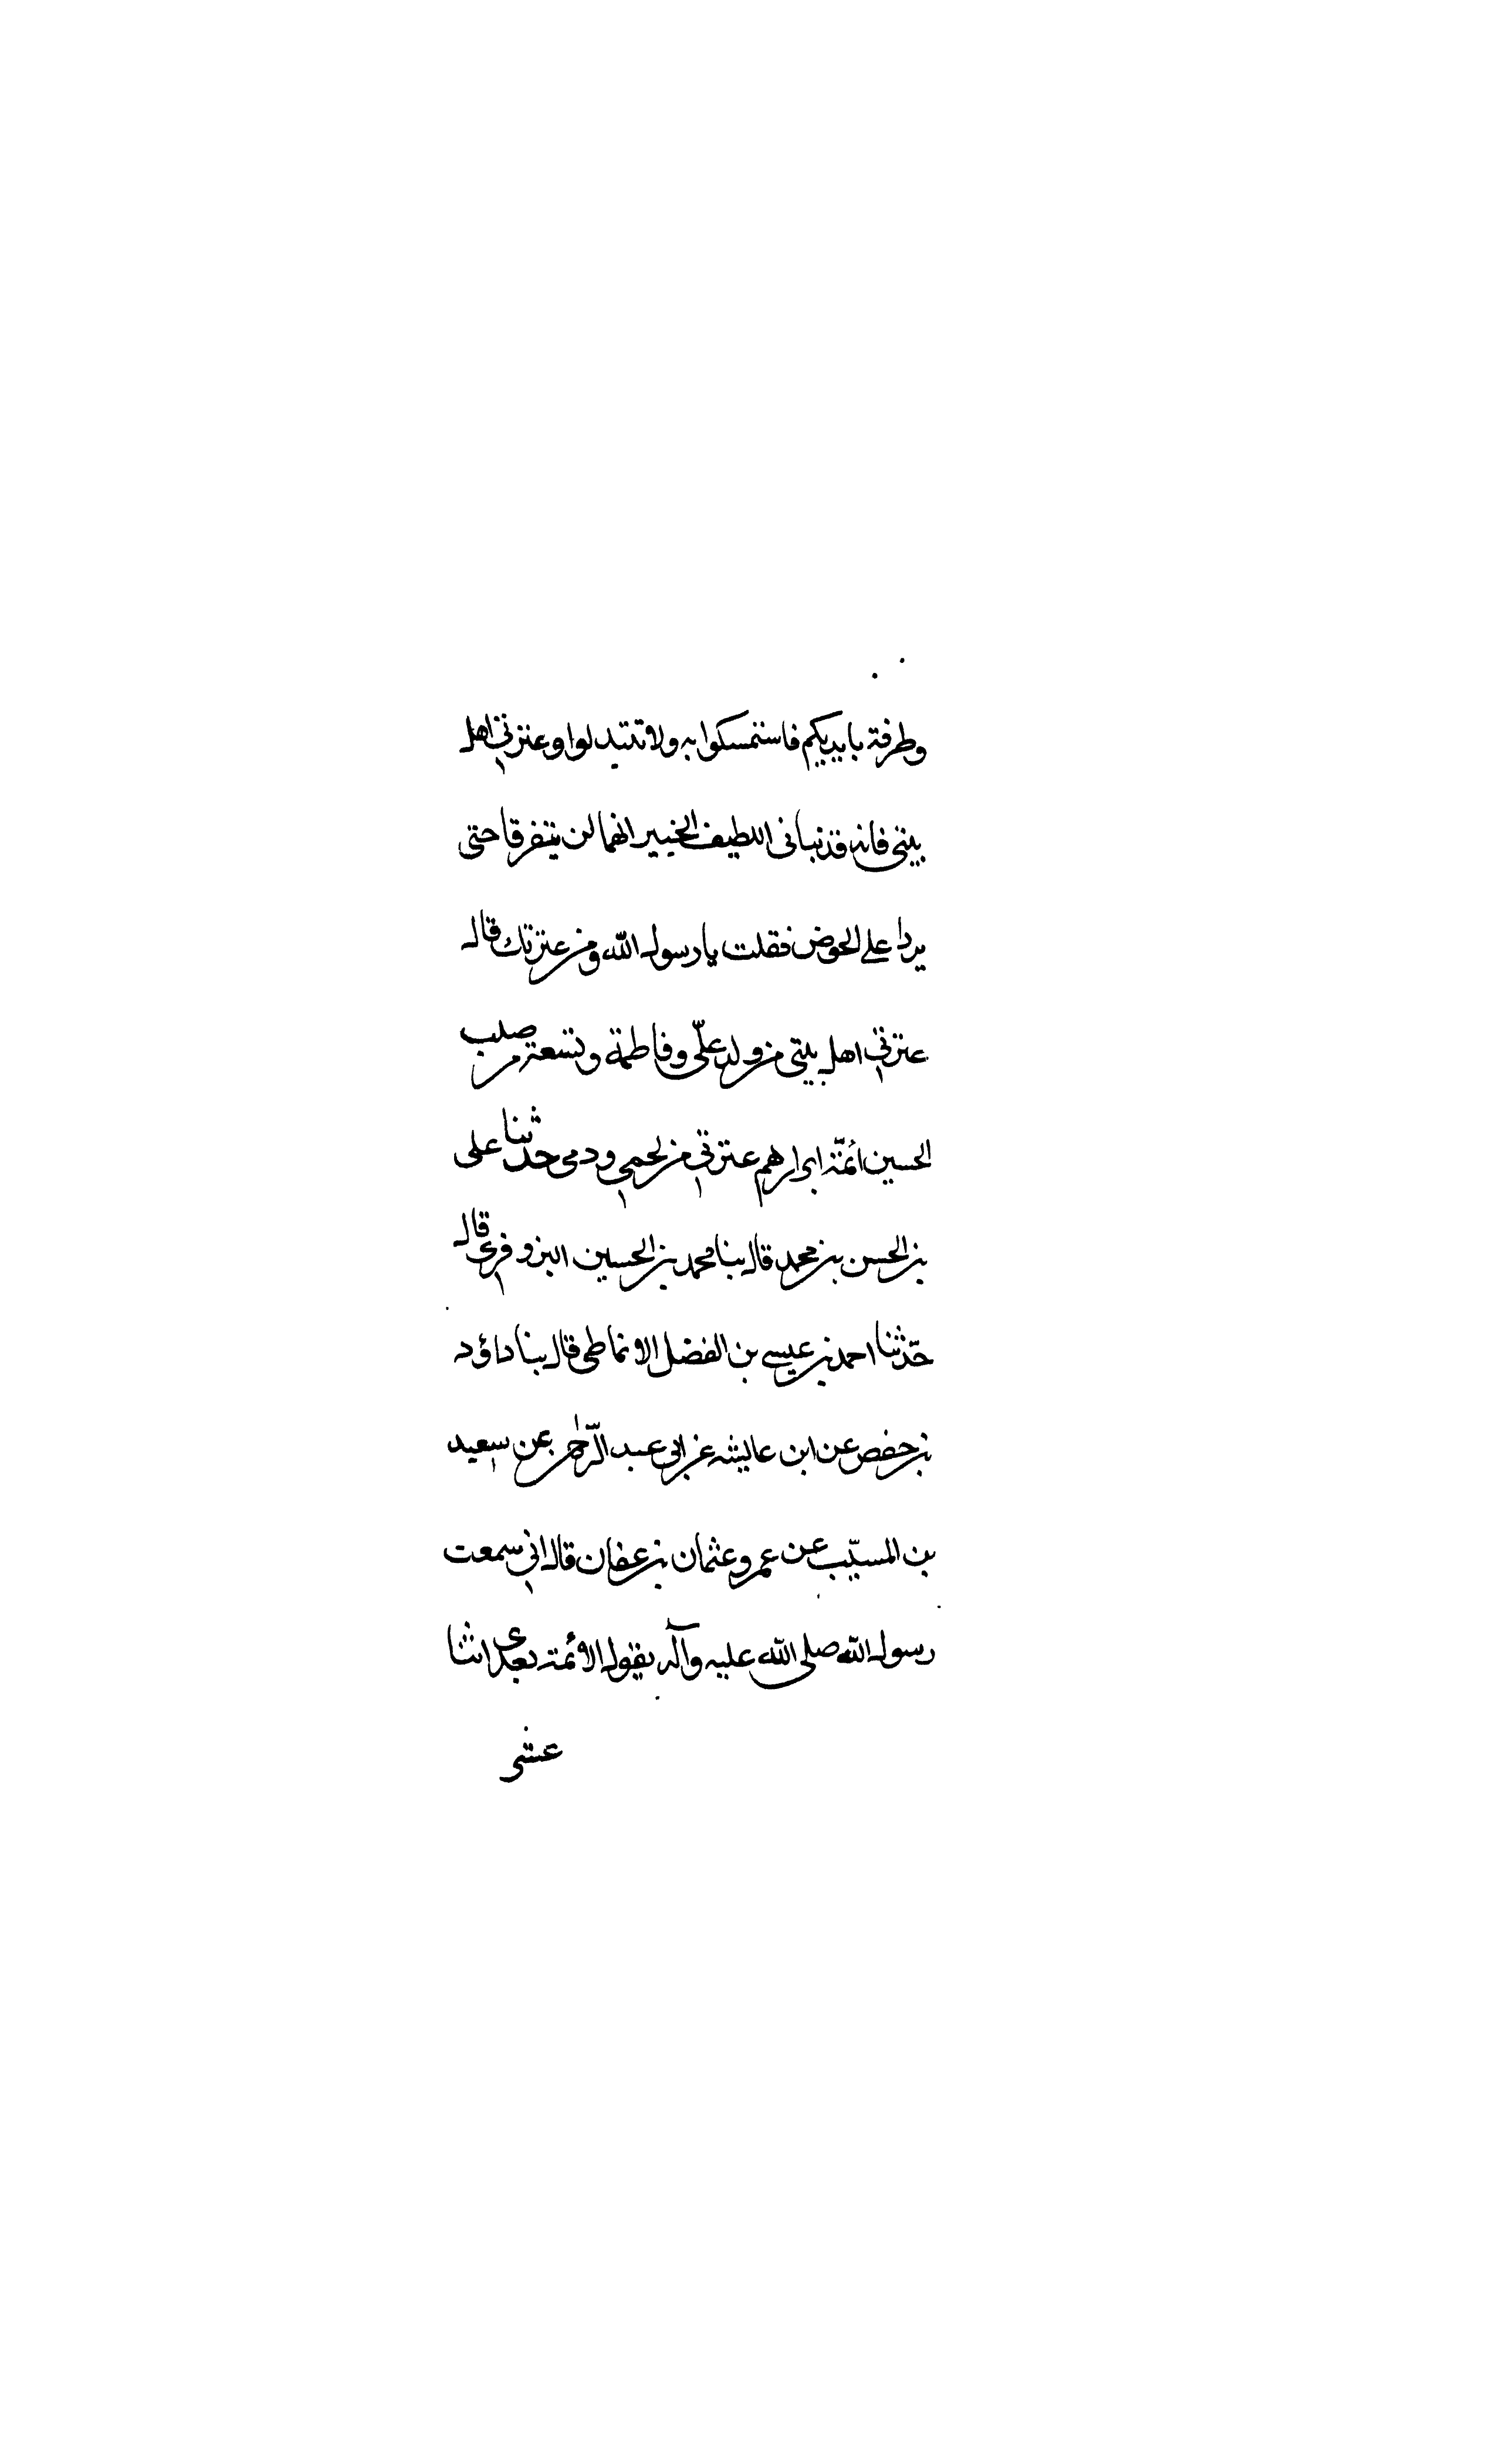 وطرفة بايديكم فاستمسكوا به ولا تتبدلوا وعترتي اهل
بيتي فانه قد نباني اللطيف الخبير انهما لن يتفرقا حتى
يردا علي الحوض فقلت يا رسول الله ومن عترتك قال
عترتي اهل بيتي من ولد علّي وفاطمة وتسعة من صلب
الحسين ائمّة ابرار هم عترتي من لحمي ودمي حدثنا على
بن الحسن بن محمد قال بنا محمد بن الحسين البزوفري قال
حدّثنا احمد بن عيسى بن الفضل الانماطي قال بنا داؤد
بن حفص عن ابن عايشه عن ابي عبد الرّحمن عن سعيد
بن المسيّب عن عمرو عثمان بن عفان قال اني سمعت
رسول الله صلى الله عليه وآله يقول الائمة بعدي اثنا
عشر